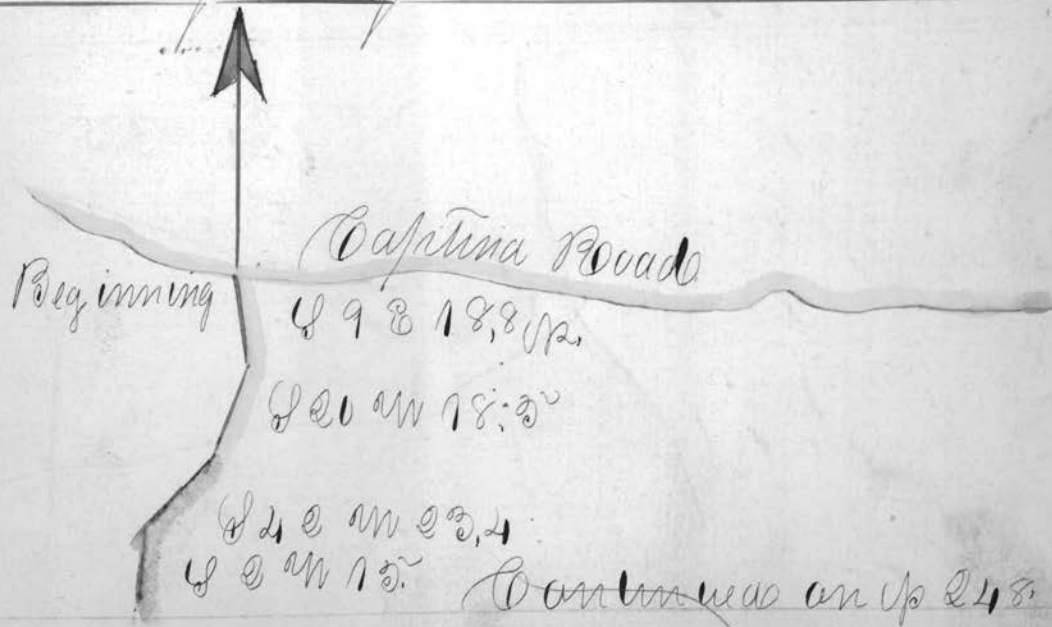 Captina Road
Beginning
S 9 E 18,8 p.
S 20 W 18.5
S 42 W 23,4
S 2 W 15.
Continued on p 248.